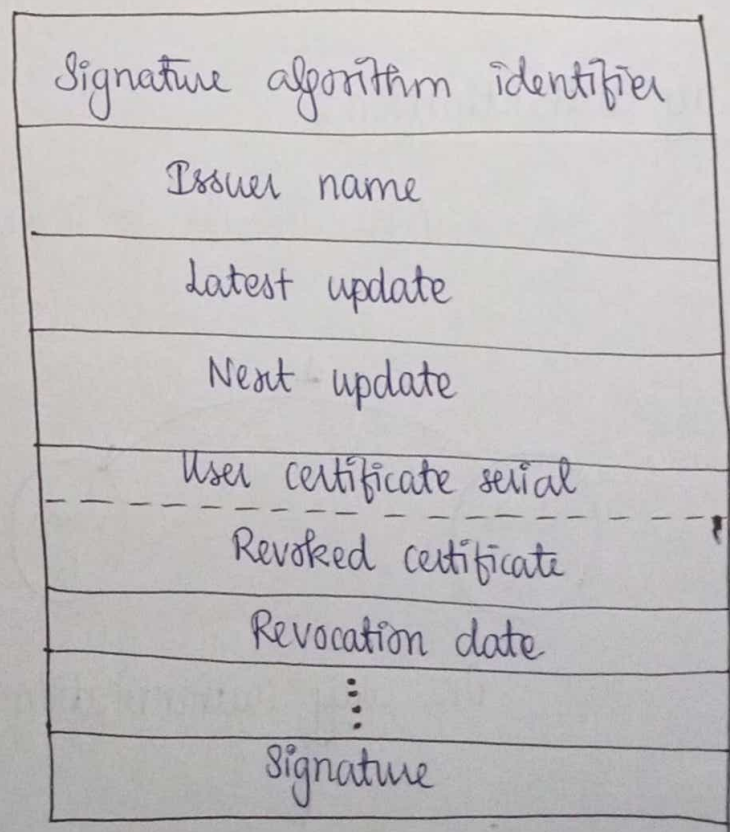 Signature algorithm identifier
Issuer name
Latest update
Next update
User certificate serial
Revoked certificate
Revocation date
Signature